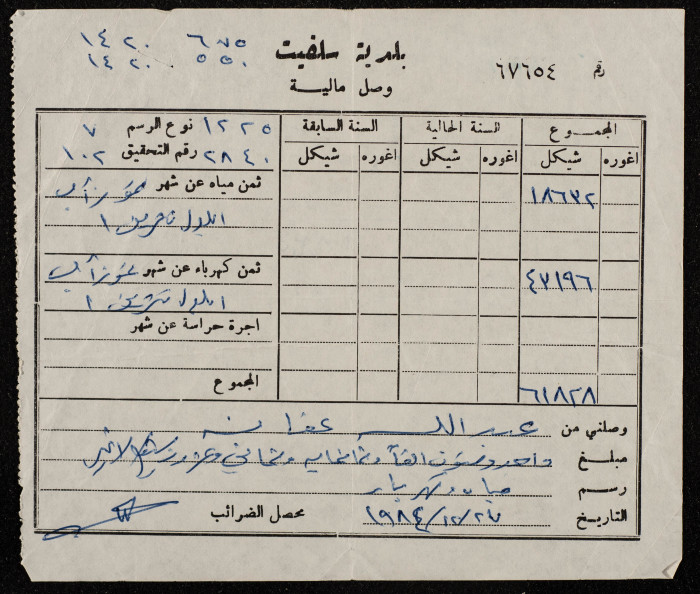 ٦٧٥ ١٤٢٠
٥٥٠ ١٤٢٠
بلدية سلفيت
رقم ٦٧٦٥٤
وصل مالية
المجموع السنة الحالية السنة السابقة ١٢٢٥ نوع الرسم ٧
اغوره شيكل اغوره شيكل اغوره شيكل ٢٨٤٠ رقم التحقيق ١٠٢
ثمن مياه عن شهر تموز آب
١٨٦٣٢
ايلول تشرين ١
ثمن كهرباء عن شهر تموز آب
٤٣١٩٦
ايلول تشرين ١
اجرة حراسة عن شهر
المجموع
٦١٨٢٨
وصلني من عبدالله عفانه
مبلغ واحد وستون الفا وثمانمايه وثماني وعشرون شيكل لاغير
رسم مياه وكهرباء
التاريخ ١٩٨٤/١٢/٢٧ محصل الضرائب